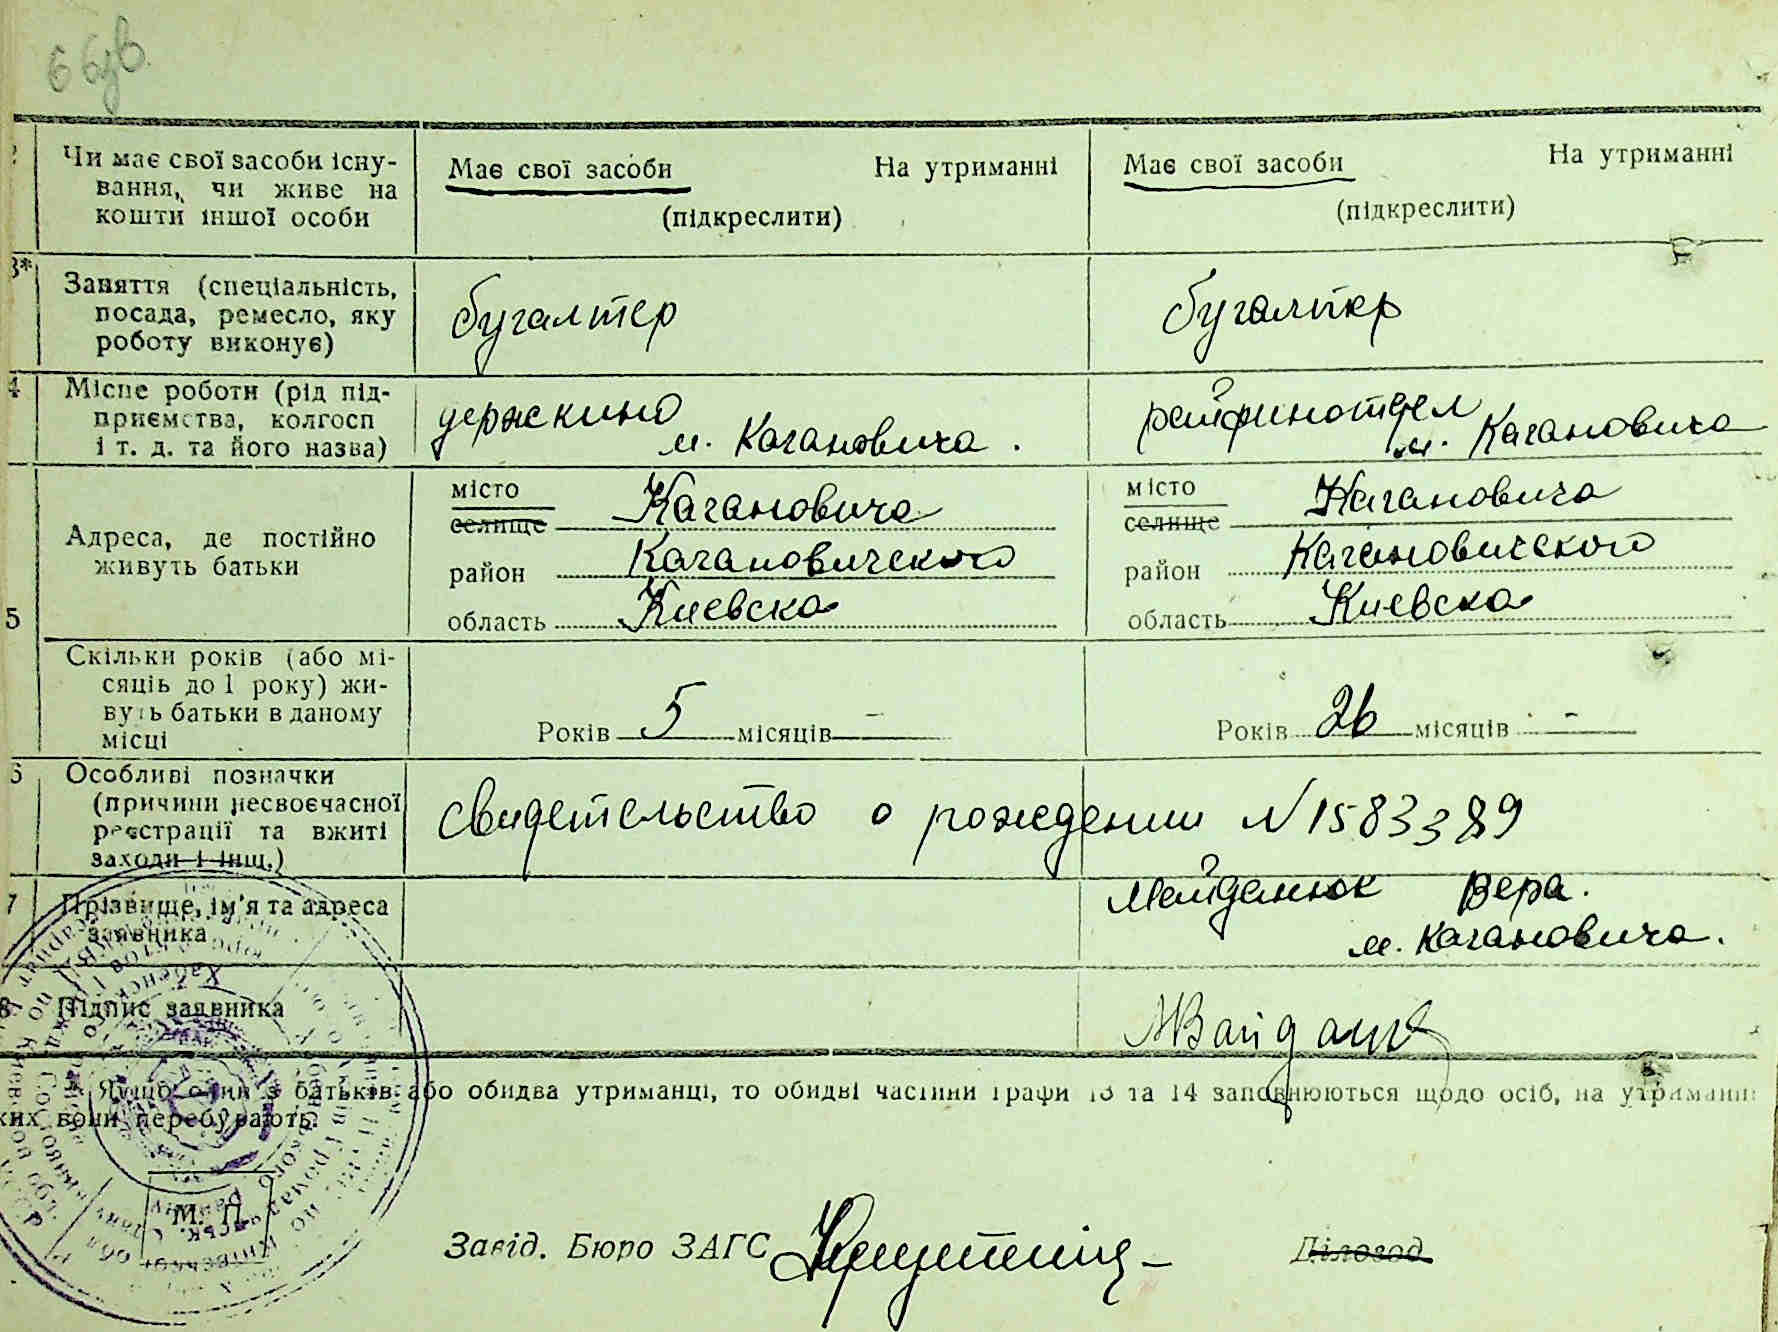 66зв.
Чи має свої засоби існу-
вання, чи живе на
кошти іншої особи
Має свої засоби На утриманні
(підкреслити)
Має свої засоби На утриманні
(підкреслити)
3*
Заняття (спеціальність,
посада, ремесло, яку
роботу виконує)
бугалтер
бугалтер
4
Місце роботи (рід під-
приємства, колгосп
і т. д. та його назва)
держкино
м. Кагановича.
райфинотдел
м. Кагановича
5
Адреса, де постійно
живуть батьки
місто Кагановича
селище
район Кагановичского
область Киевска
місто Кагановича
селище
район Кагановичского
область Киевска
Скільки років (або мі-
сяців до 1 року) жи-
вуть батьки в даному
місці
Років 5 місяців —
Років 26 місяців —
6
Особливі позначки
(причини несвоєчасної
реєстрації та вжиті
заходи і інш.)
свидетельство о рождении N 1583389
7
Прізвище, ім'я та адреса
заявника
Майданюк Вера.
м. Кагановича.
8
Підпис заявника
* Якщо один з батьків або обидва утриманці, то обидві частини графи 13 та 14 заповнюються щодо осіб, на утриманні
яких вони перебувають.
М. П.
Завід. Бюро ЗАГС
Діловод